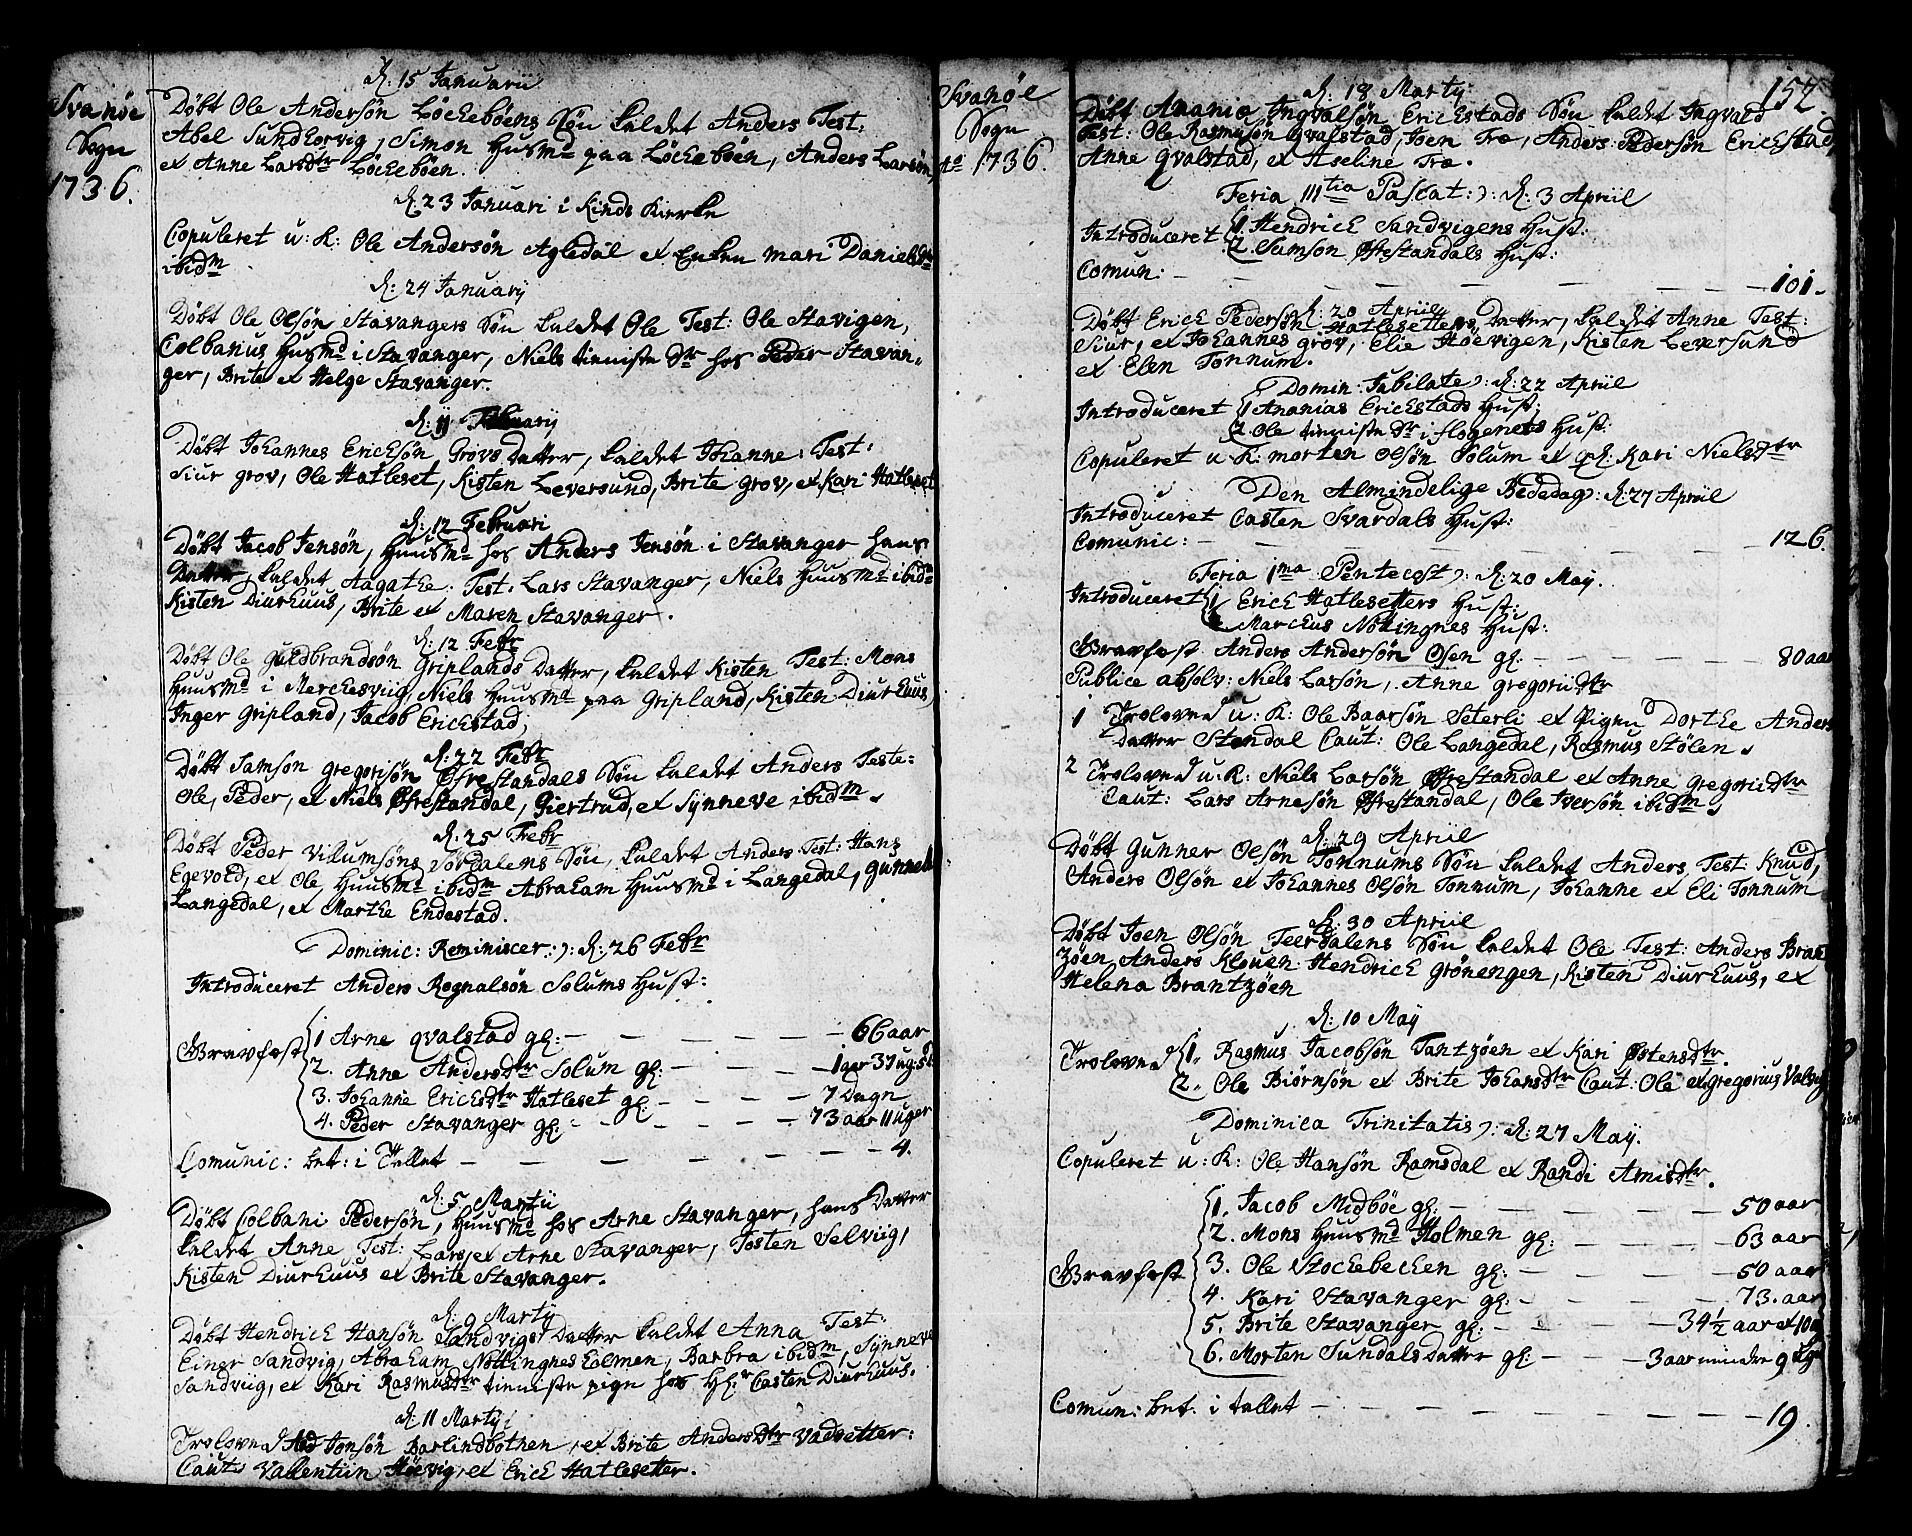 Svanøe
Sogn
1736.
d: 15 Januarii
Døbt Ole Andersøn Løckebøens Søn kaldet Anders Test:
Abel Sundhorvig, Simon Husmd paa Løckebøen, Anders Larsøn,
ex Anne Larsdtr Løckebøen.
d: 23 Januari i Kinds Kierke
Copuleret u: K: Ole Andersøn Agledal ex Enken mari Danielsdtr
ibidm
d: 24 Januarij
Døbt Ole Olsøn Stavangers Søn kaldet Ole Test: Ole Stavigen,
Colbanus Husmd i Stavanger, Niels tieniste dr hos Peder Stavan-
ger, Brite ex Helge Stavanger.
d: 11 Februarij
Døbt Johannes Ericksøn Grovs Datter, kaldet Johanne. Test:
Siur grov, Ole Hatleset, Kisten Leversund, Brite grov, ex Kari Hatleset
d: 12 Februari
Døbt Jacob Jensøn, Huusmd hos Anders Jensøn i Stavanger hans
Datter, kaldet Aagathe. Test: Lars Stavanger, Niels Huusmd ibidm
Kisten Diurhuus, Brite ex Maren Stavanger.
d: 12 Febr
Døbt Ole Guldbrandsøn Griplands Datter, kaldet Kisten Test: Mons
Huusmd i Merckesviig, Niels Huusmd paa Gripland, Kisten Diurhuus,
Inger Gripland, Jacob Erickstad,
d: 22 Febr
Døbt Samson gregorisøn Øfrestandals Søn kaldet Anders Teste:
Ole, Peder, ex Niels Øfrestandal, Giertrud, ex Synneve ibidm.
d: 25 Febr
Døbt Peder Vikumsøns Sørdalens Søn, kaldet Anders Test: Hans
Egevold, ex Ole Huusmd ibidm Abraham Huusmd i Langedal, Gunnel
Langedal, ex Marthe Endestad.
Dominic: Reminiscer: ): d: 26 Febr
Introduceret Anders Rognalsøn Solums Hust:
Gravfæst
1 Arne qvalstad gl: — 66 aar
2. Anne Andersdtr Solum gl: — 1 aar 37 ug: 5 d
3. Johanne Ericksdtr Hatleset gl: — 7 Dagn
4. Peder Stavanger gl: — 73 aar 11 uger
Comunic: bet: i Tallet — 4.
d: 5 Martii
Døbt Colbani Pedersøn, Huusmd hos Arne Stavanger, hans Datter
kaldet Anne Test: Lars, ex Arne Stavanger, Tosten Selviig,
Kisten Diurhuus ex Brite Stavanger.
d: 9 Martij
Døbt Hendrick Hansøn Sandvigs Datter kaldet Anna Test:
Einer Sandvig, Abraham Nøttingnesholmen, Barbra ibidm, Synneve
Sandviig, ex Kari Rasmusdtr tieniste pige hos Hl:r Casten Diurhuus.
d: 11 Martij
Trolovned Jonsøn Barlindbotnen, ex Brite Andersdtr Vadsetter:
Caut: Vallentin Høevig, ex Erick Hatlesetter.
Svanøe
Sogn
Ao 1736.
152.
d: 18 Martij
Døbt Anania Ingvalsøn Erickstads Søn kaldet Ingvald
Test: Ole Rasmusøn qvalstad, Joen Træ, Anders Pedersøn Erickstad,
Anne qvalstad, ex Aseline Træ.
Feria IIItia Pascat: ): d: 3 Apriil
Introduceret 1. Hendrick Sandvigens Hust:
2. Samson Øfrestandals Hust:
Comun: — 101.
d: 20 Apriil
Døbt Erick Pedersøn Hatlesetters Datter, kaldet Anne Test:
Siur, ex Johannes grov, Elie Høevigen, Kisten Leversund
ex Elen Tonnum.
Domin: Jubilate): d: 22 Apriil
Introduceret 1 Ananias Erickstads Hust:
2. Ole tieniste dr i flogenets Hust:
Copuleret u K: morten Olsøn Solum ex qh: Kari Nielsdtr
Den Almindelige Bededag): d: 27 Apriil
Introduceret Casten Svardals Hust:
Comunic: — 126.
Feria 1ma Pentecost): d: 20 May.
Introduceret 1 Erick Hatlesetters Hust:
2 Marckus Nøttingnes Hust:
Gravfæst Anders Andersøn Osen gl: — 80 aar
Publice absolv: Niels Larsøn, Anne gregoriidtr
1 Trolovned u: K: Ole Baarsøn Seterli ex Pigen Dorthe Anders
Datter Standal Caut: Ole Langedal, Rasmus Stølen.
2 Trolovned u: K: Niels Larsøn Øfrestandal ex Anne gregoriidtr
Caut: Lars Arnesøn Øfrestandal, Ole Iversøn ibidm.
d: 29 Apriil
Døbt Gunner Olsøn Tonnums Søn kaldet Anders Test: Knud,
Anders Olsøn ex Johannes Olsøn Tonnum, Johanne ex Eli Tonnum
d: 30 Apriil
Døbt Joen Olsøn Feerdalens Søn kaldet Ole Test: Anders Brant
zøen, Anders Kloven Hendrick Grønengen, Kisten Diurhuus, ex
Helena Brantzøen
d: 10 May
Trolovned 1. Rasmus Jacobsøn Tantzøen ex Kari Østensdtr.
2. Ole Biørnsøn ex Brite Johansdtr Caut: Ole ex gregorius Valvig
Dominica Trinitatis): d: 27 May.
Copuleret u: K: Ole Hansøn Ramsdal ex Randi Arnisdtr.
Gravfæst
1. Jacob Midbøe gl: — 50 aar
2. Mons Huusmd Holmen gl: — 63 aar
3. Ole Stockebecken gl: — 50 aar
4. Kari Stavanger gl: — 73. aar
5. Brite Stavanger gl: — 34½ aar ex 10
6. Morten Sundals Datter gl: — 3 aar minder 9 uger
Comun: bet. i tallet — 19.